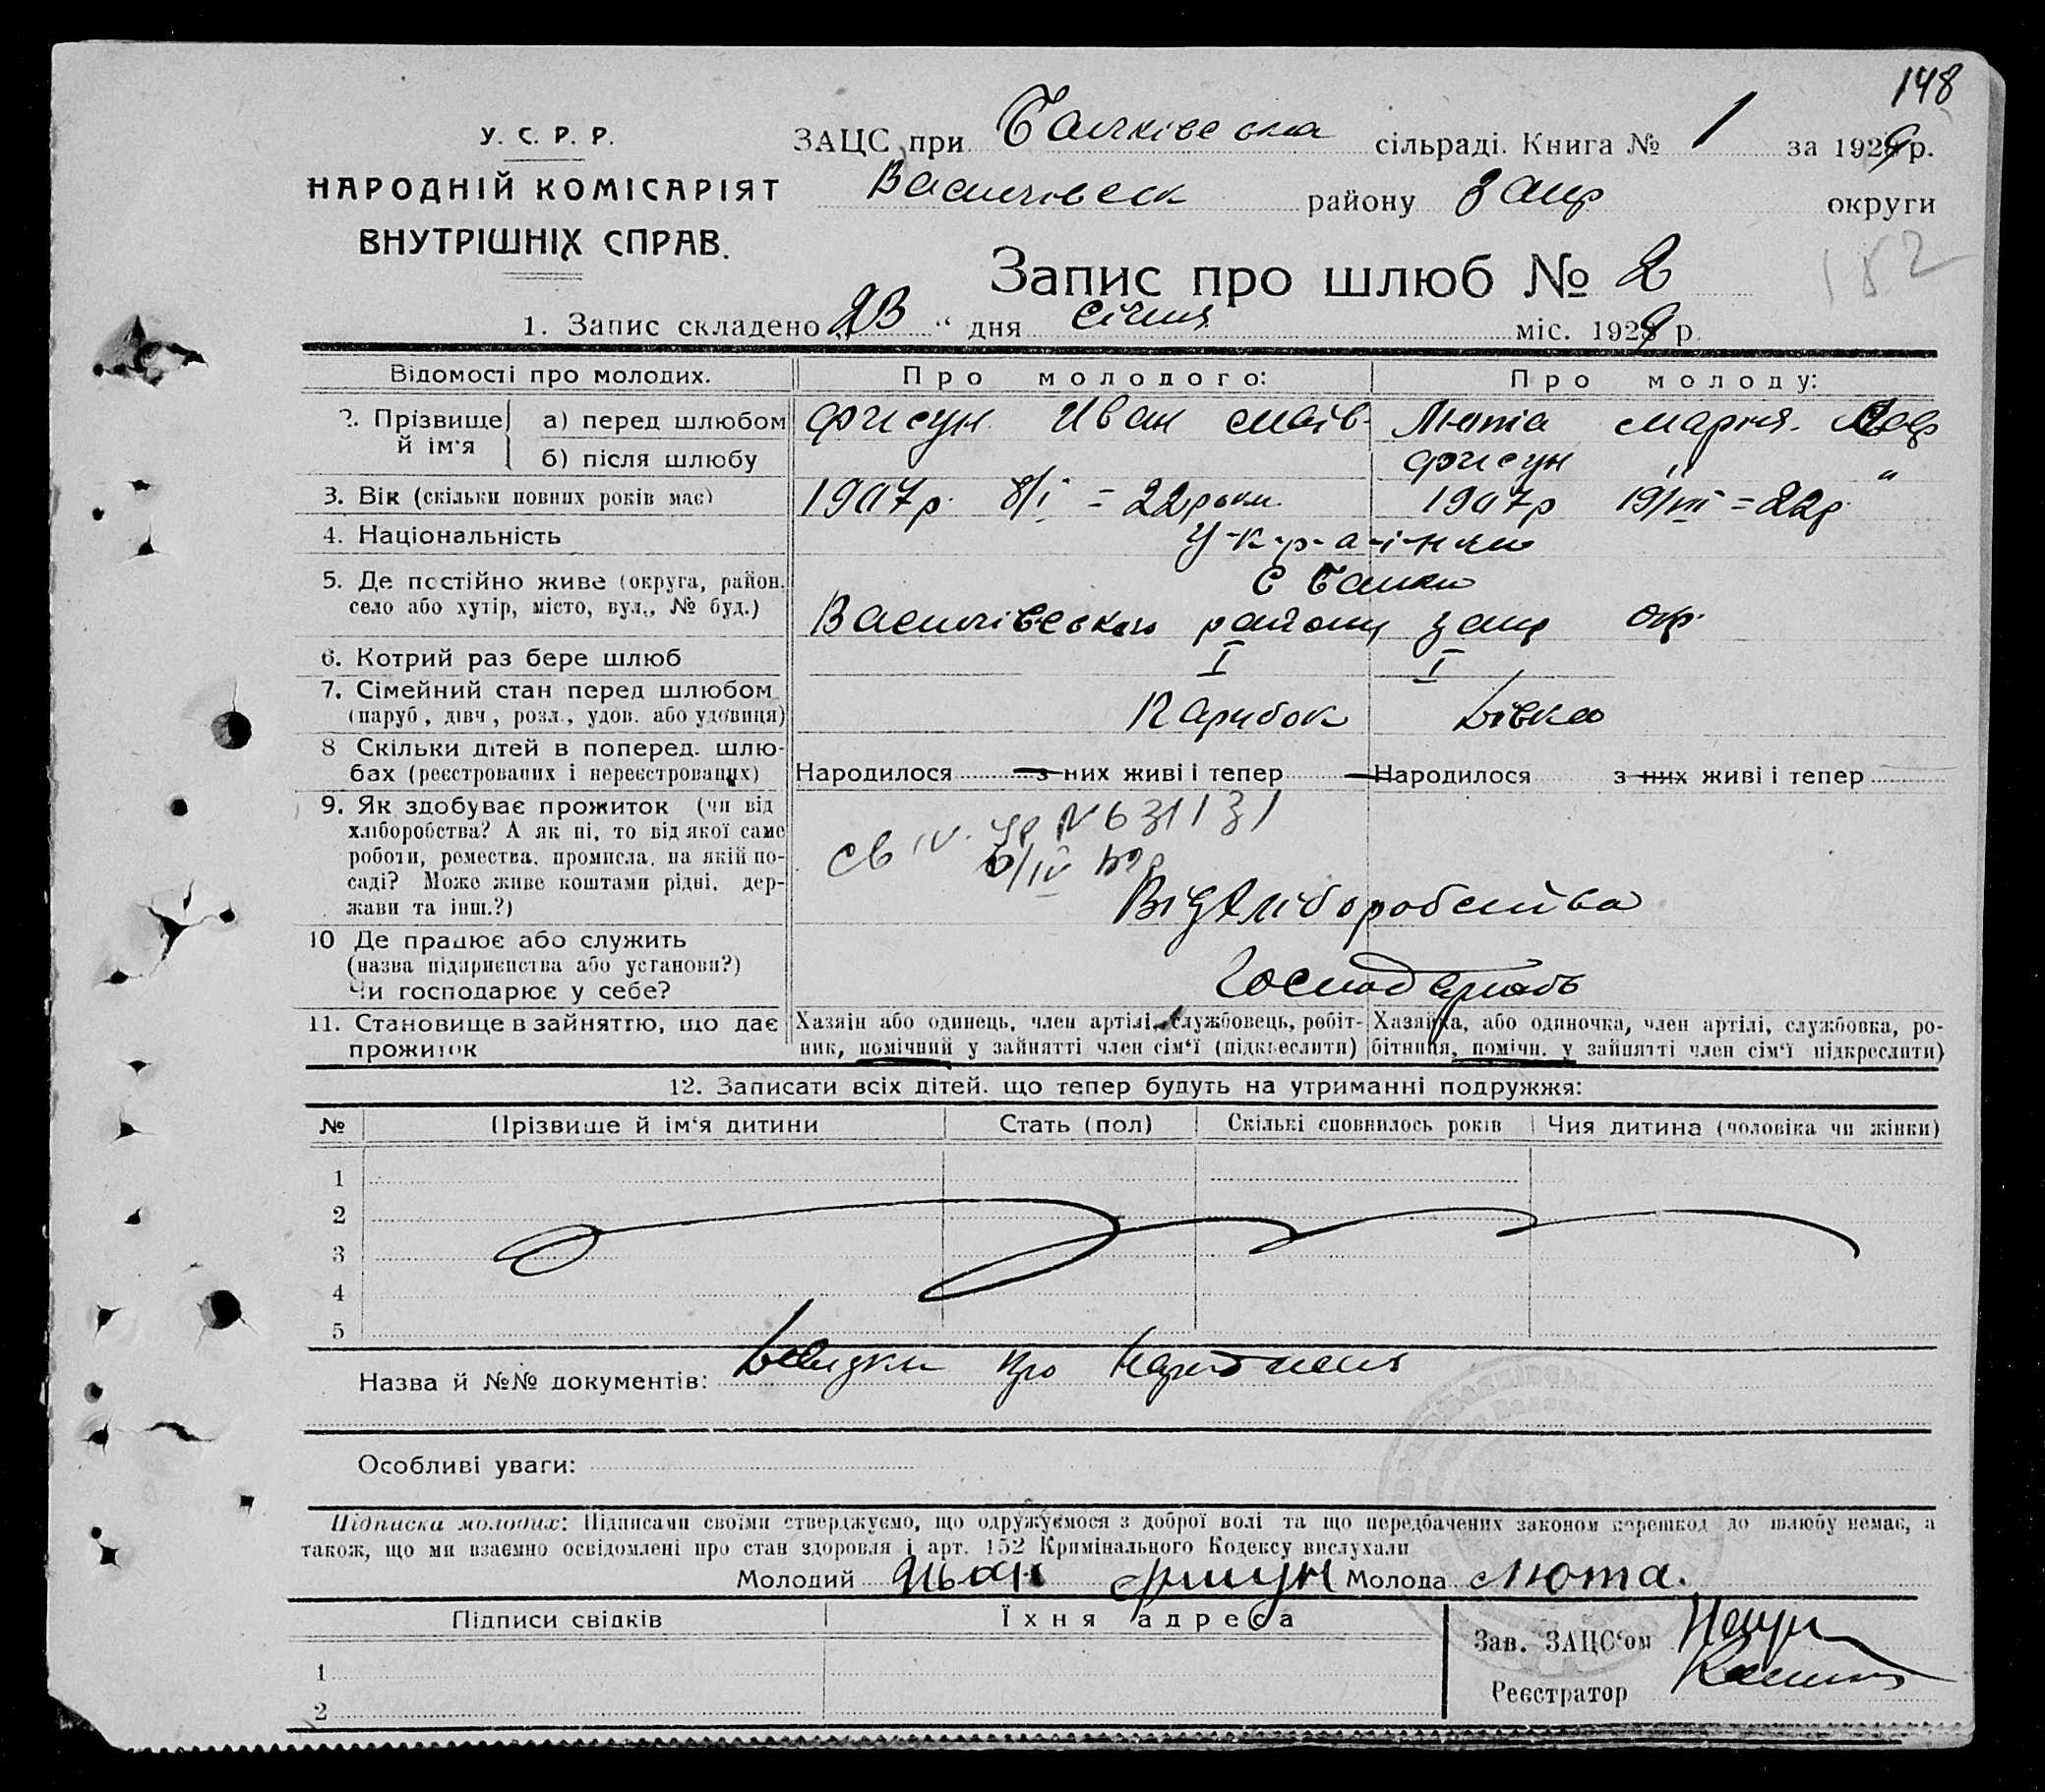 148
У. С. Р. Р.
НАРОДНІЙ КОМІСАРІЯТ
ВНУТРІШНІХ СПРАВ.
ЗАЦС при Балківська сільраді. Книга № 1 за 1929 р.
Василівськ району Запр округи
182
Запис про шлюб № 2
1. Запис складено „23“ дня січня міс. 1929 р.
Відомості про молодих. Про молодого: Про молоду:
2. Прізвище й ім'я а) перед шлюбом Фисун Иван Люта Мария
б) після шлюбу Фисун " "
3. Вік (скільки повних років має) 1907р 8/I = 22 роки 1907р = 22р
4. Національність У-к-р-а-ї-н-ци
5. Де постійно живе (округа, район, С Балки
село або хутір, місто, вул., № буд.) Василівського району Запр окр.
6. Котрий раз бере шлюб I I
7. Сімейний стан перед шлюбом
(паруб, дівч, розл., удов. або удовиця) Парубок Дівка
8 Скільки дітей в поперед. шлю-
бах (реєстрованих і нереєстрованих) Народилося з них живі і тепер Народилося з них живі і тепер
9. Як здобуває прожиток (чи від
хліборобства? А як ні, то від якої саме
роботи, ремества, промисла, на якій по-
саді? Може живе коштами рідні, дер-
жави та інш.?) Від хліборобства
10 Де працює або служить
(назва підприємства або установи?)
Чи господарює у себе? Господарюють
11. Становище в зайняттю, що дає Хазяїн або одинець, член артілі, службовець, робіт- Хазяйка, або одиночка, член артілі, службовка, ро-
прожиток ник, помічний у зайнятті член сім'ї (підкреслити) бітниця, помічн. у зайнятті член сім'ї підкреслити)
12. Записати всіх дітей, що тепер будуть на утриманні подружжя:
№ Прізвище й ім'я дитини Стать (пол) Скількі сповнилось років Чия дитина (чоловіка чи жінки)
1
2
3
4
5
Назва й №№ документів: Довидки про
Особливі уваги:
Підписка молодих: Підписами своїми стверджуємо, що одружуємося з доброї волі та що передбачених законом перешкод до шлюбу немає, а
також, що ми взаємно освідомлені про стан здоровля і арт. 152 Кримінального Кодексу вислухали
Молодий Иван Фисун Молода Люта.
Підписи свідків Їхня адреса
Зав. ЗАЦС'ом
1
Реєстратор
2